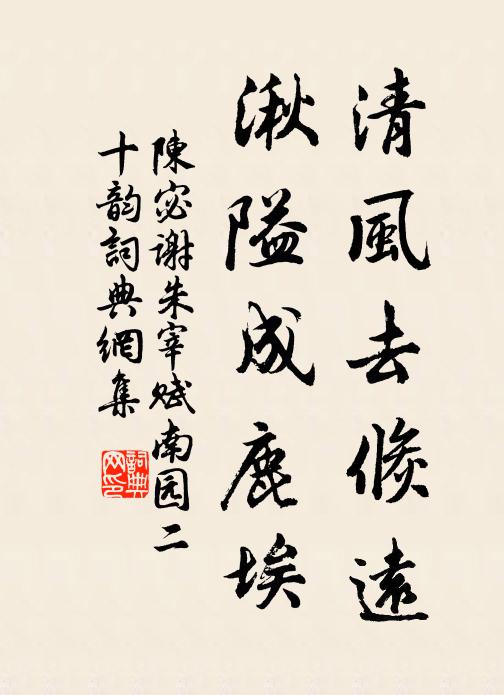 清風去倏遠
湫隘成鹿埃
陳宓謝朱宰賦南园二
十韵詞典網集
詞典网印